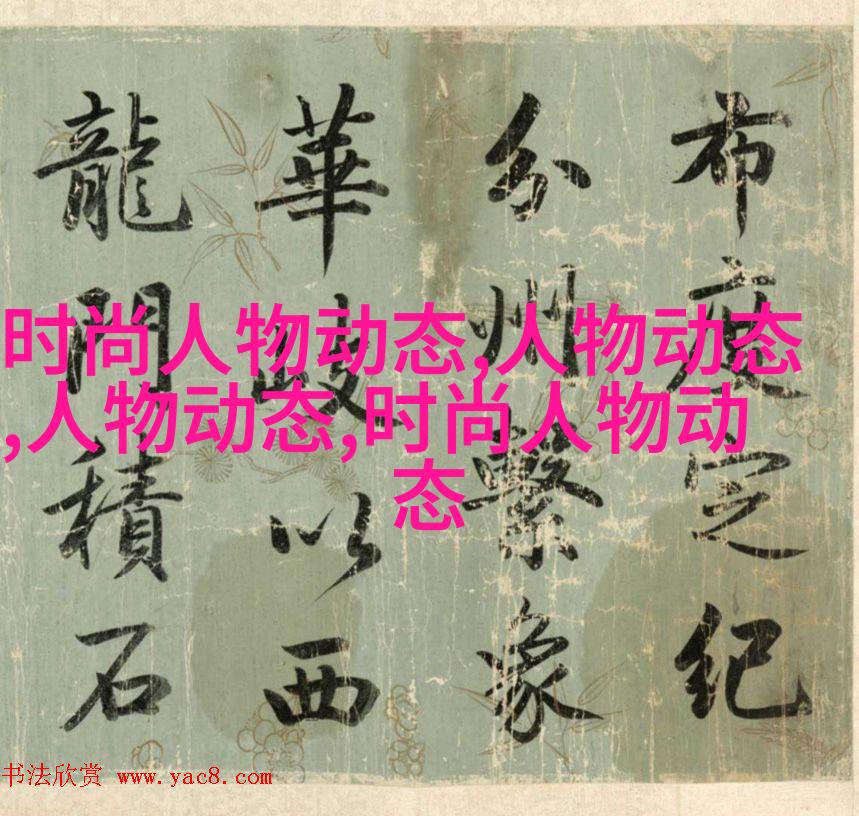 布度定纪
分州繫象
華岐以西
龍門積石
时尚人物动态,人物动态
,人物动态,时尚人物动
态
书法欣赏 www.yac8.com